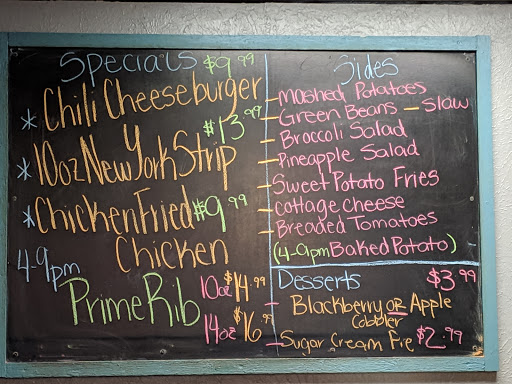 Specials $9.99
* Chili Cheeseburger
$13.99
* 10oz New York Strip
* Chicken Fried $9.99
Chicken
4-9pm
Prime Rib 10oz $14.99
14oz $16.99
Sides
- Mashed Potatoes
- Green Beans - Slaw
- Broccoli Salad
- Pineapple Salad
- Sweet Potato Fries
- Cottage Cheese
- Breaded Tomatoes
(4-9pm Baked Potato)
Desserts $3.99
- Blackberry OR Apple
Cobbler
- Sugar Cream Pie $2.99